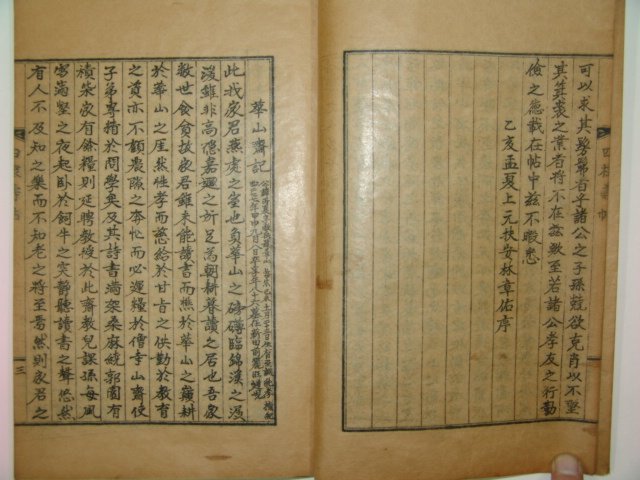 可以求其髣髴者乎諸公之子孫兢欲克肖以不墜
其箕裘之業者將不在玆歟至若諸公孝友之行勤
儉之德載在帖中玆不暇悉
乙亥孟夏上元扶安林章佑序
華山齋記
此我家君燕處之室也負華山之磅礴臨錦溪之
濴雖非高隱嘉遯之所足爲朝耕暮讀之居也吾家
數世食貧故家君雖未能讀書而樵於華山之巓耕
於華山之崖然性孝而慈給於甘旨之供勤於教育
之資亦不顧農隙之奔忙而必運糧於僧寺山齋使
子弟專精於問學矣及其詩書滿架桑麻繞郭園有
積柴家有餘糧則延聘教授於此齋教兒課孫每風
雪滿壑之夜起卧於飼牛之突靜聽讀書之聲悠然
有人不及知之樂而不知老之將至焉然則家君之
三